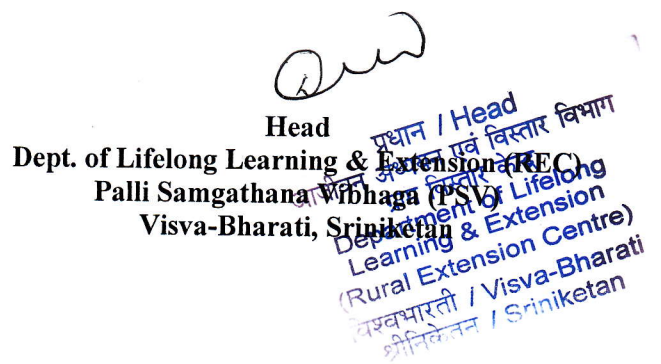 Head
Dept. of Lifelong Learning & Extension (REC)
Palli Samgathana Vibhaga (PSV)
Visva-Bharati, Sriniketan
प्रधान / Head
आजीवन अध्ययन एवं विस्तार विभाग
विस्तार
Department of Lifelong
Learning & Extension
(Rural Extension Centre)
विश्वभारती / Visva-Bharati
श्रीनिकेतन / Sriniketan